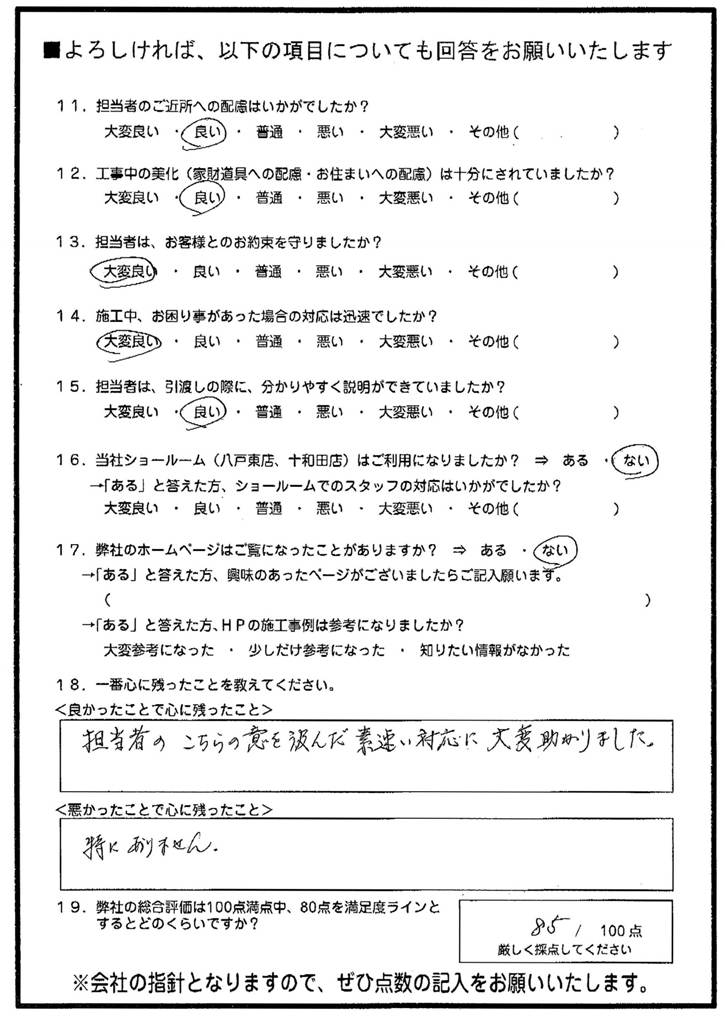 ■よろしければ、以下の項目についても回答をお願いいたします
１１．担当者のご近所への配慮はいかがでしたか？
大変良い ・ 良い ・ 普通 ・ 悪い ・ 大変悪い ・ その他（　　　　）
１２．工事中の美化（家財道具への配慮・お住まいへの配慮）は十分にされていましたか？
大変良い ・ 良い ・ 普通 ・ 悪い ・ 大変悪い ・ その他（　　　　）
１３．担当者は、お客様とのお約束を守りましたか？
大変良い ・ 良い ・ 普通 ・ 悪い ・ 大変悪い ・ その他（　　　　）
１４．施工中、お困り事があった場合の対応は迅速でしたか？
大変良い ・ 良い ・ 普通 ・ 悪い ・ 大変悪い ・ その他（　　　　）
１５．担当者は、引渡しの際に、分かりやすく説明ができていましたか？
大変良い ・ 良い ・ 普通 ・ 悪い ・ 大変悪い ・ その他（　　　　）
１６．当社ショールーム（八戸東店、十和田店）はご利用になりましたか？ ⇒ ある ・ ない
→「ある」と答えた方、ショールームでのスタッフの対応はいかがでしたか？
大変良い ・ 良い ・ 普通 ・ 悪い ・ 大変悪い ・ その他（　　　　）
１７．弊社のホームページはご覧になったことがありますか？ ⇒ ある ・ ない
→「ある」と答えた方、興味のあったページがございましたらご記入願います。
（　　　　）
→「ある」と答えた方、ＨＰの施工事例は参考になりましたか？
大変参考になった ・ 少しだけ参考になった ・ 知りたい情報がなかった
１８．一番心に残ったことを教えてください。
<良かったことで心に残ったこと>
担当者の こちらの意を汲んだ 素速い対応に 大変助かりました。
<悪かったことで心に残ったこと>
特にありません。
１９．弊社の総合評価は100点満点中、80点を満足度ラインと
するとどのくらいですか？
85 / 100点
厳しく採点してください
※会社の指針となりますので、ぜひ点数の記入をお願いいたします。